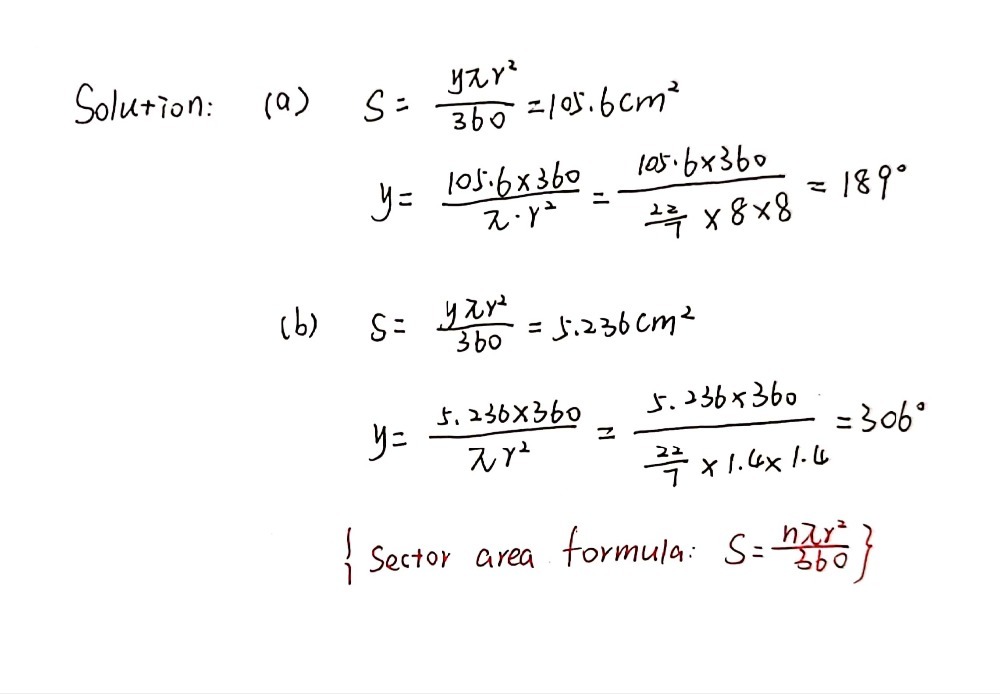 Solution: (a) S = yπr²/360 = 105.6cm²
y = 105.6×360/π·r² = 105.6×360/(22/7 × 8×8) = 189°
(b) S = yπr²/360 = 5.236cm²
y = 5.236×360/πr² = 5.236×360/(22/7 × 1.4×1.4) = 306°
{ Sector area formula: S = nπr²/360 }